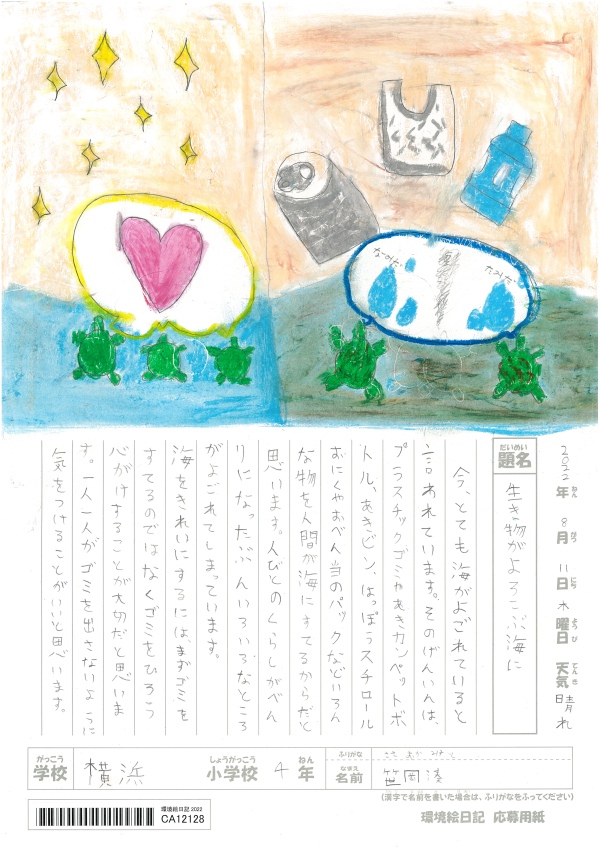 なみだ
なみだ
2022年 8月 11日 木曜日 天気 晴れ
ねん
がつ
にち
よう び
てん き
だいめい
題名
生き物がよろこぶ海に
今、とても海がよごれていると
言われています。そのげんいんは、
プラスチックゴミやあきカンペットボ
トル、あきビン、はっぽうスチロール
おにくやおべん当のパックなどいろん
な物を人間が海にすてるからだと
思います。人びとのくらしがべん
りになったぶんいろいろなところ
がよごれてしまっています。
海をきれいにするには、まずゴミを
すてるのではなくゴミをひろう
心がけすることが大切だと思いま
す。一人一人がゴミを出さないように
気をつけることがいいと思います。
がっこう
学校
横浜
しょうがっこう
小学校
4
ねん
年
ふりがな
ささ おか みなと
なまえ
名前
笹岡湊
(漢字で名前を書いた場合は、ふりがなをふってください)
環境絵日記2022
CA12128
環境絵日記 応募用紙